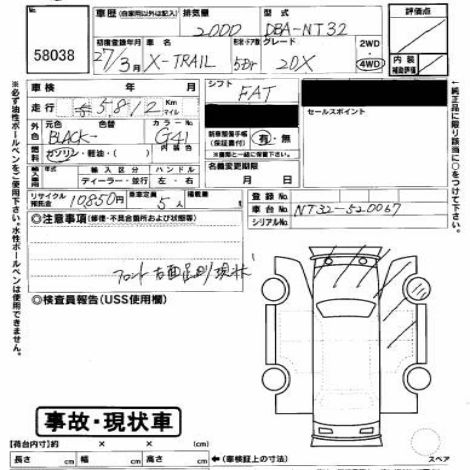 車歴 (自家用以外は記入) 排気量 型式 評価点
58038 2000 DBA-NT32
初度登録年月 車名 形状・ドア数 グレード 2WD・4WD 内装補助評価
27/3月 X-TRAIL 5Dr 20X
車検 年 月 シフト FAT
走行 Km マイル
セールスポイント
外色 元色 色替 カラーNo.
BLACK- G41
新車整備手帳(保証書付) 有・無
※書類と一緒に保管下さい。
燃料 ガソリン・軽油・( )
名義変更期限
輸入車 輸入区分 ハンドル
ディーラー・並行 左・右
月 日
リサイクル預託金 10,850円 定員 5人 積載量
登録No.
車台No. NT32-520067
シリアルNo.
◎注意事項(修復・不具合箇所および状態等)
フロント
現状
◎検査員報告(USS使用欄)
事故・現状車
【荷台内寸】約 × × (cm)
長さ cm 幅 cm 高さ cm ←(車検証上の寸法) スペア
※必ず油性ボールペンをご使用下さい。水性ボールペンは使用できません。
←純正品に限り該当に○をつけて下さい。